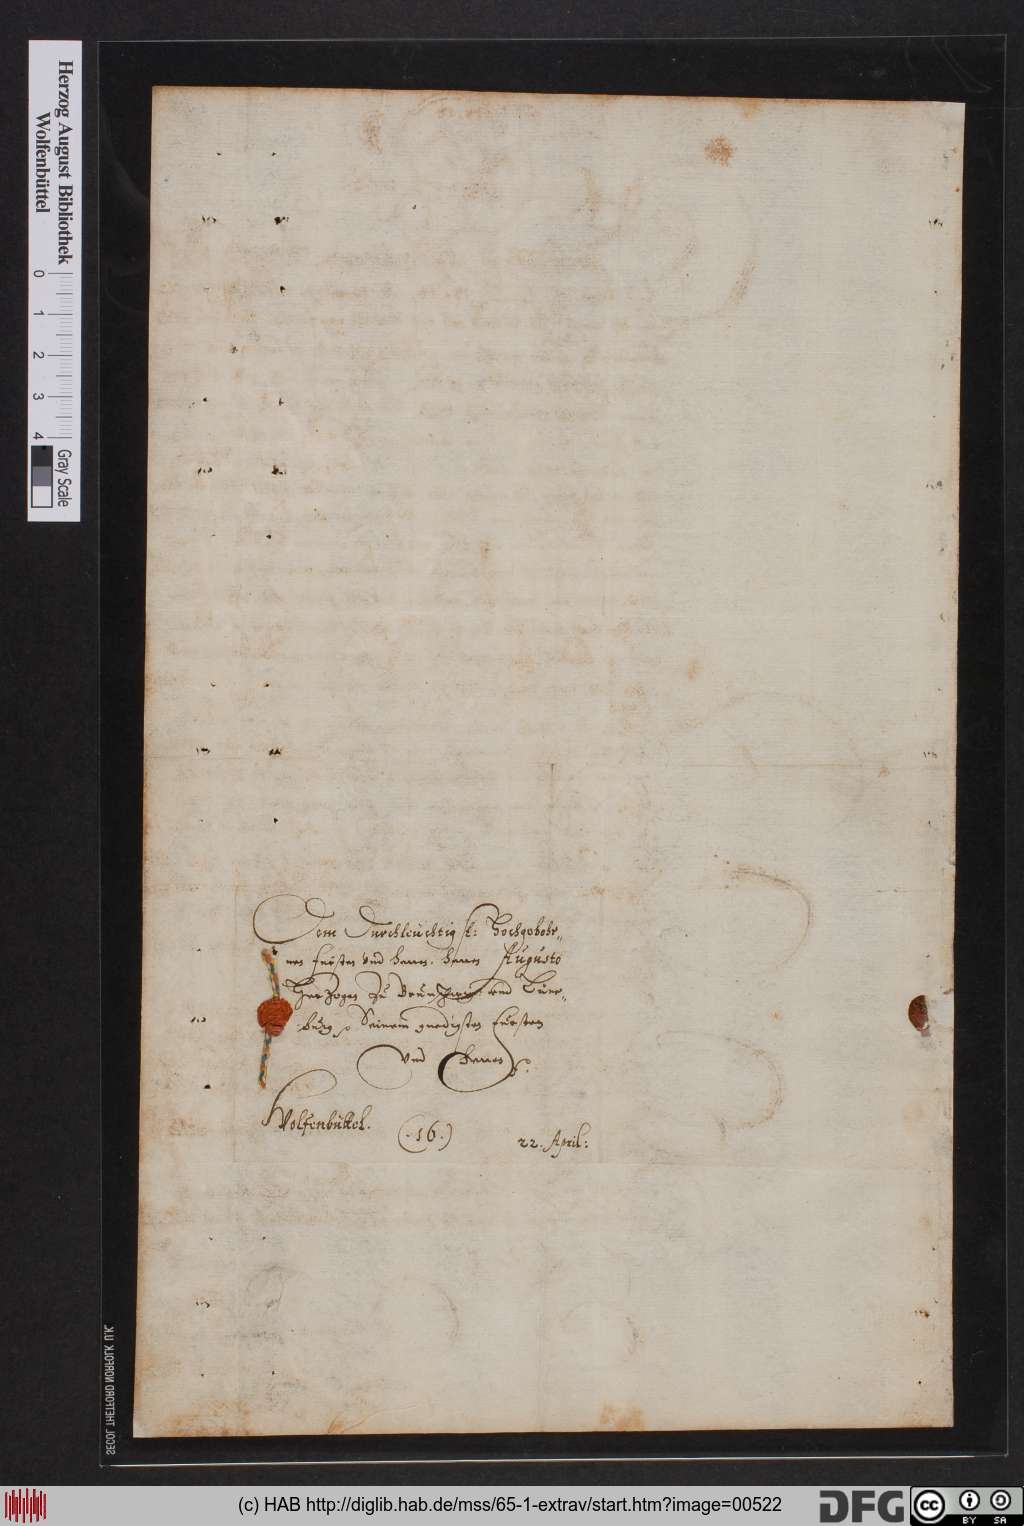 Herzog August Bibliothek
Wolfenbüttel
0 1 2 3 4
Gray Scale
Dem Durchleuchtigst: Hochgebohr„
nen Fürsten Vnd herren. herren Augusto
Hertzogen Zu Braunschweig vnd Lüne„
burg Seinem gnedigsten Fürsten
Vnd herren
Wolfenbüttel.
(.16.)
22. April:
SECOL THETFORD NORFOLK U.K.
(c) HAB http://diglib.hab.de/mss/65-1-extrav/start.htm?image=00522
DFG
cc
BY SA